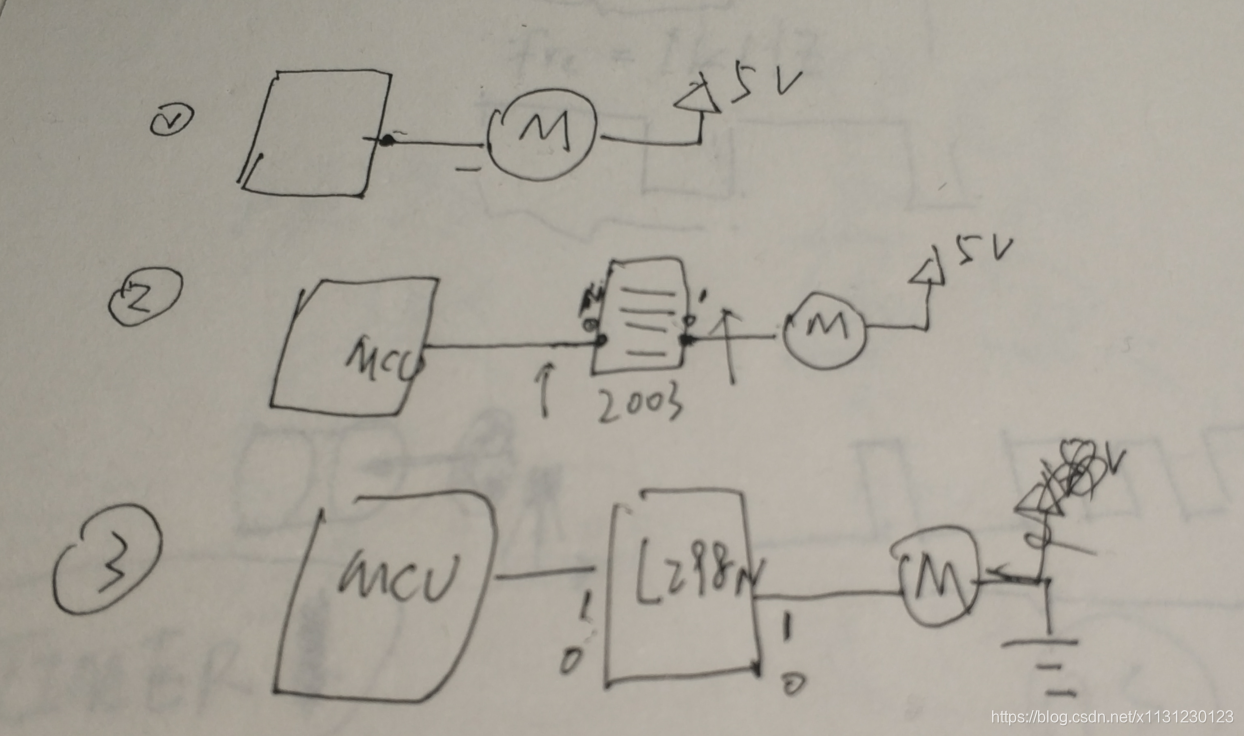 ① M 5V
② MCU 1 0 2003 M 5V
③ MCU 1 0 L298N 1 0 M V
https://blog.csdn.net/x1131230123